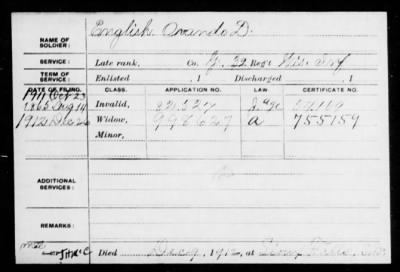 NAME OF SOLDIER: English Orlando D.
SERVICE: Late rank, Co. G, 32 Reg't Wis. Inf
TERM OF SERVICE: Enlisted , 1 Discharged , 1
DATE OF FILING. CLASS. APPLICATION NO. LAW CERTIFICATE NO.
1911 Oct 23
1865 Aug 14 Invalid,
1912 Dec 26 Widow, 998627 a 755159
Minor,
ADDITIONAL SERVICES:
REMARKS:
Died Dec 9, 1912, at